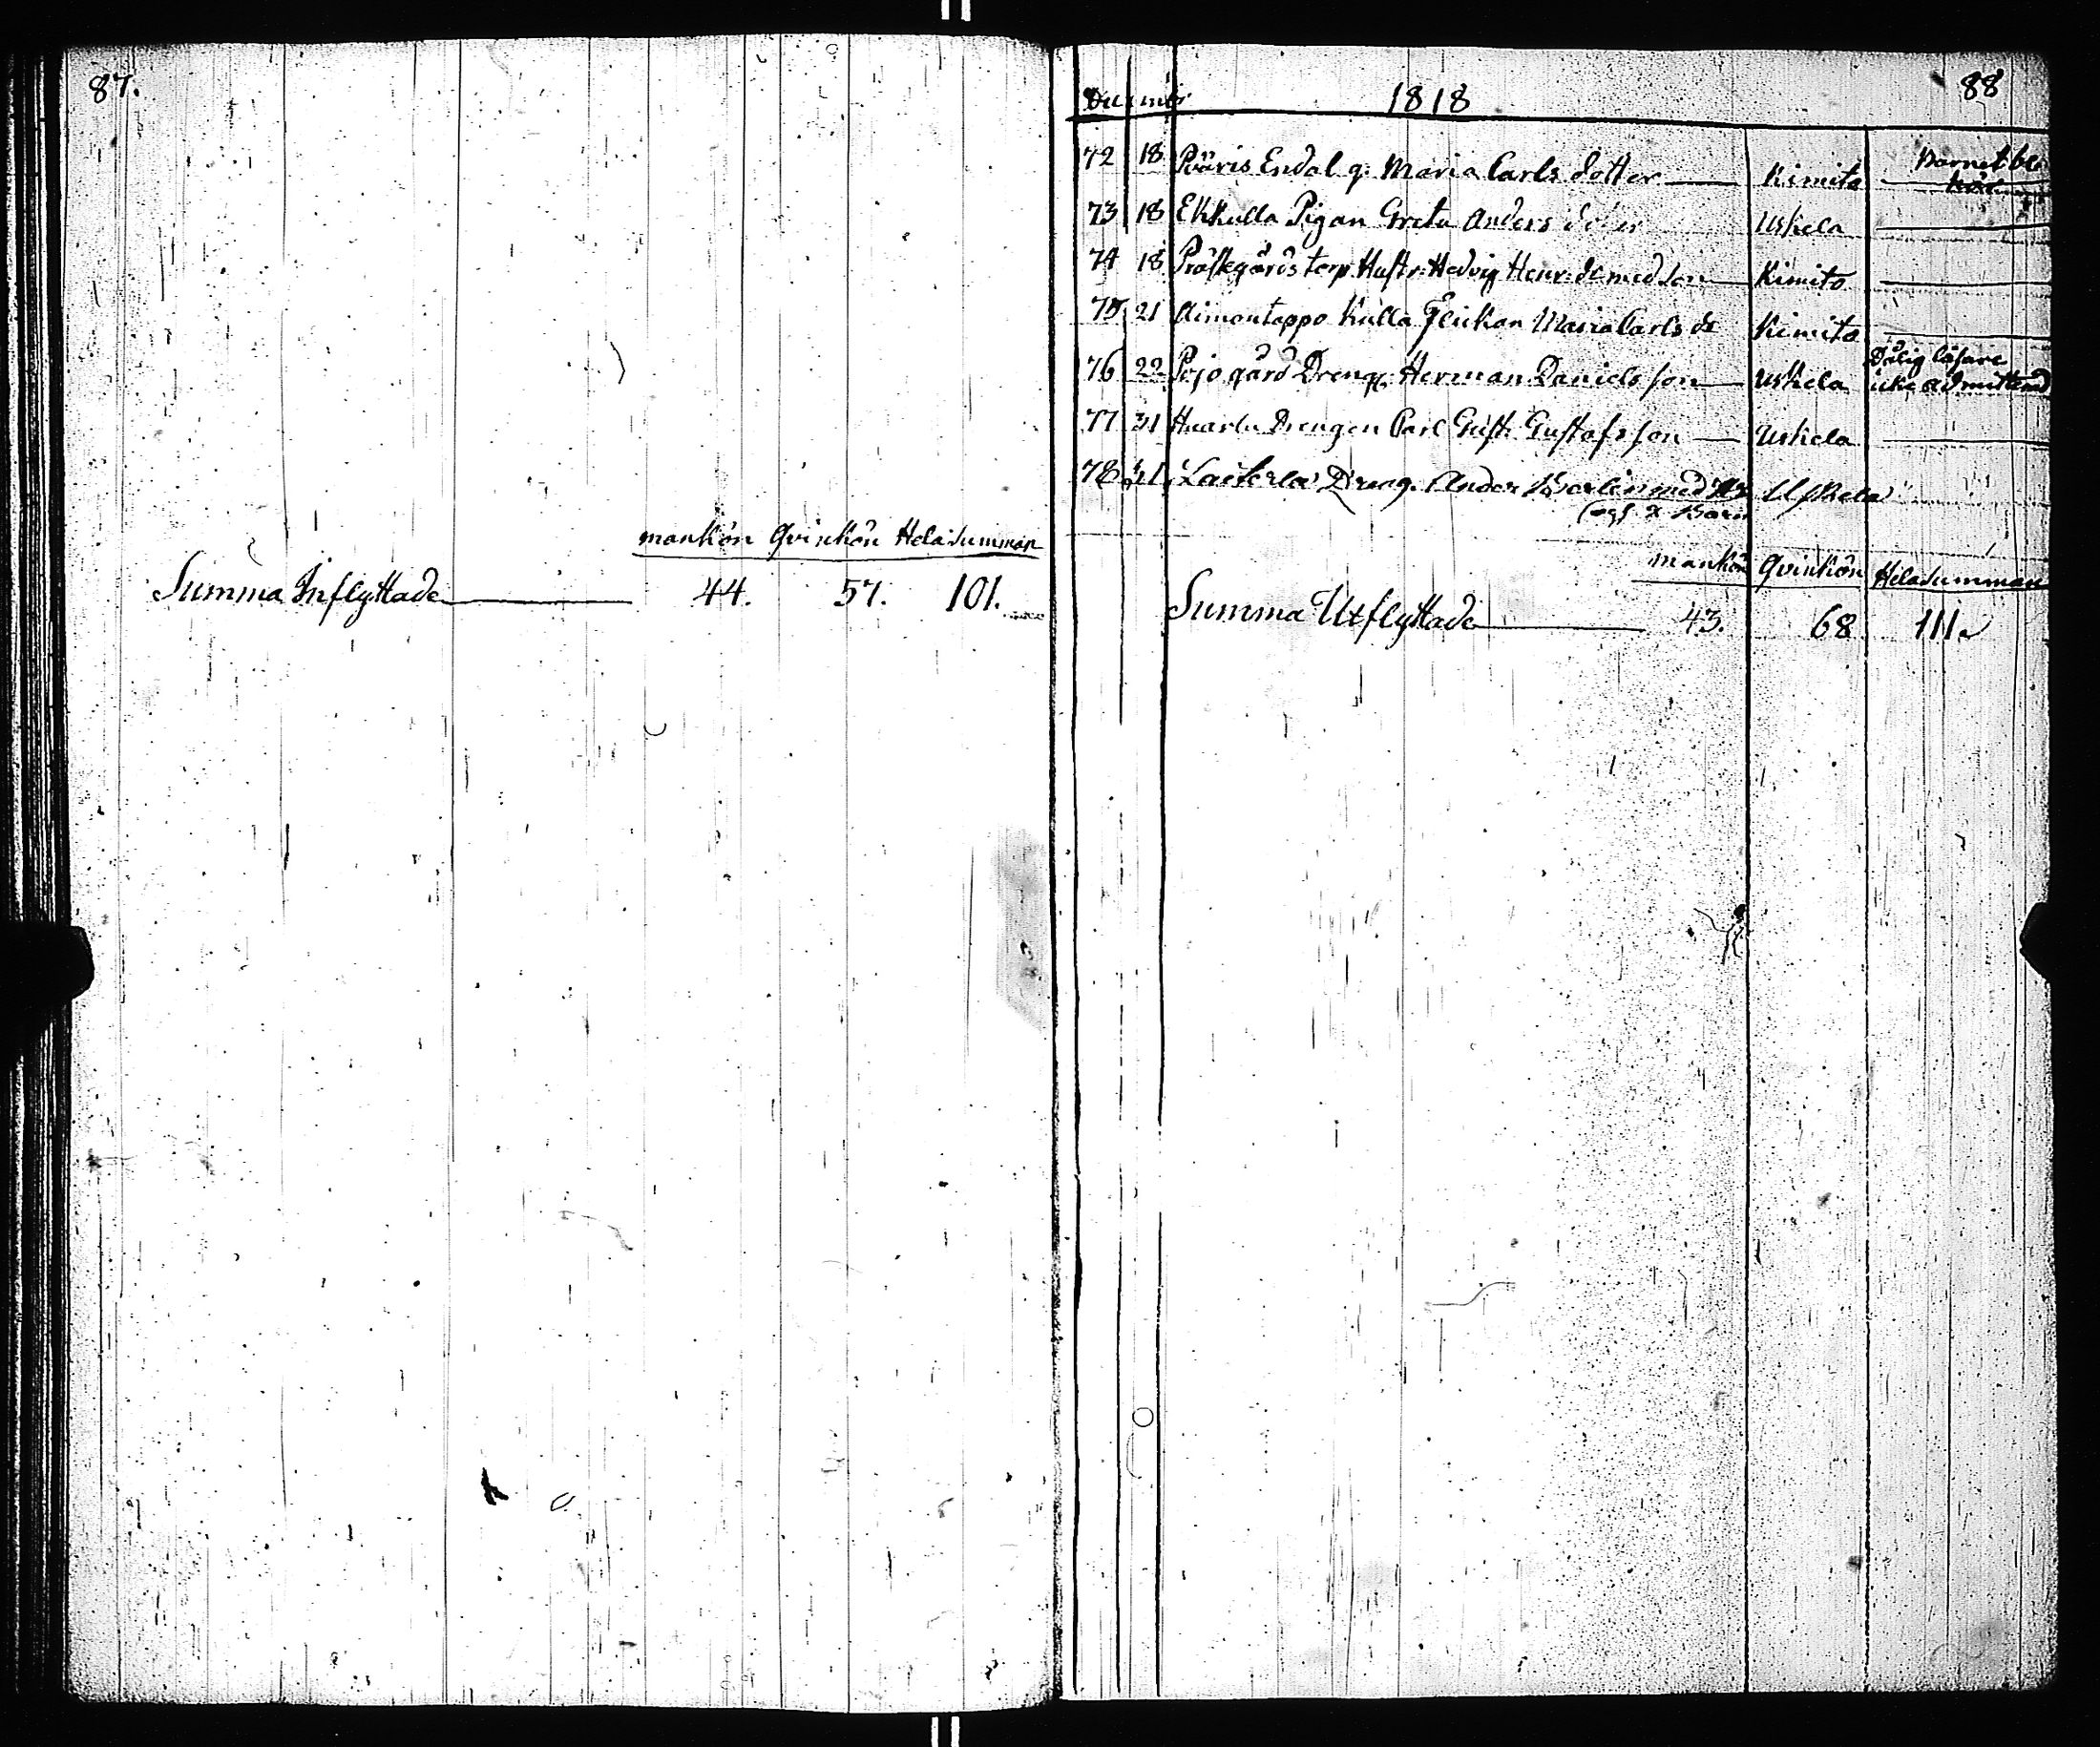 87.
mankön Qvinkön Hela Summan
Summa Inflyttade 44. 57. 101.
88
December 1818
72 18 Pväris Endal q: Maria Carls dotter Kimito Barnet
73 18 Ekkulla Pigan Greta Anders doter Uskela
74 18 Prästegårds torp. Hustr: Hedvig Henr: dr med son Kimito
75 21 Aimontappo Kulla Flickan Maria Carls dr Kimito
76 22 Pojo gård Dreng: Herman Daniels son Uskela Dålig läsare icke admitterad
77 31 Huarlu Drengen Carl Gust: Gustafs son Uskela
78 31 Dreng. Anders med Uskela
och 2 Barn
mankön Qvinkön Hela Summan
Summa Utflyttade 43. 68 111.